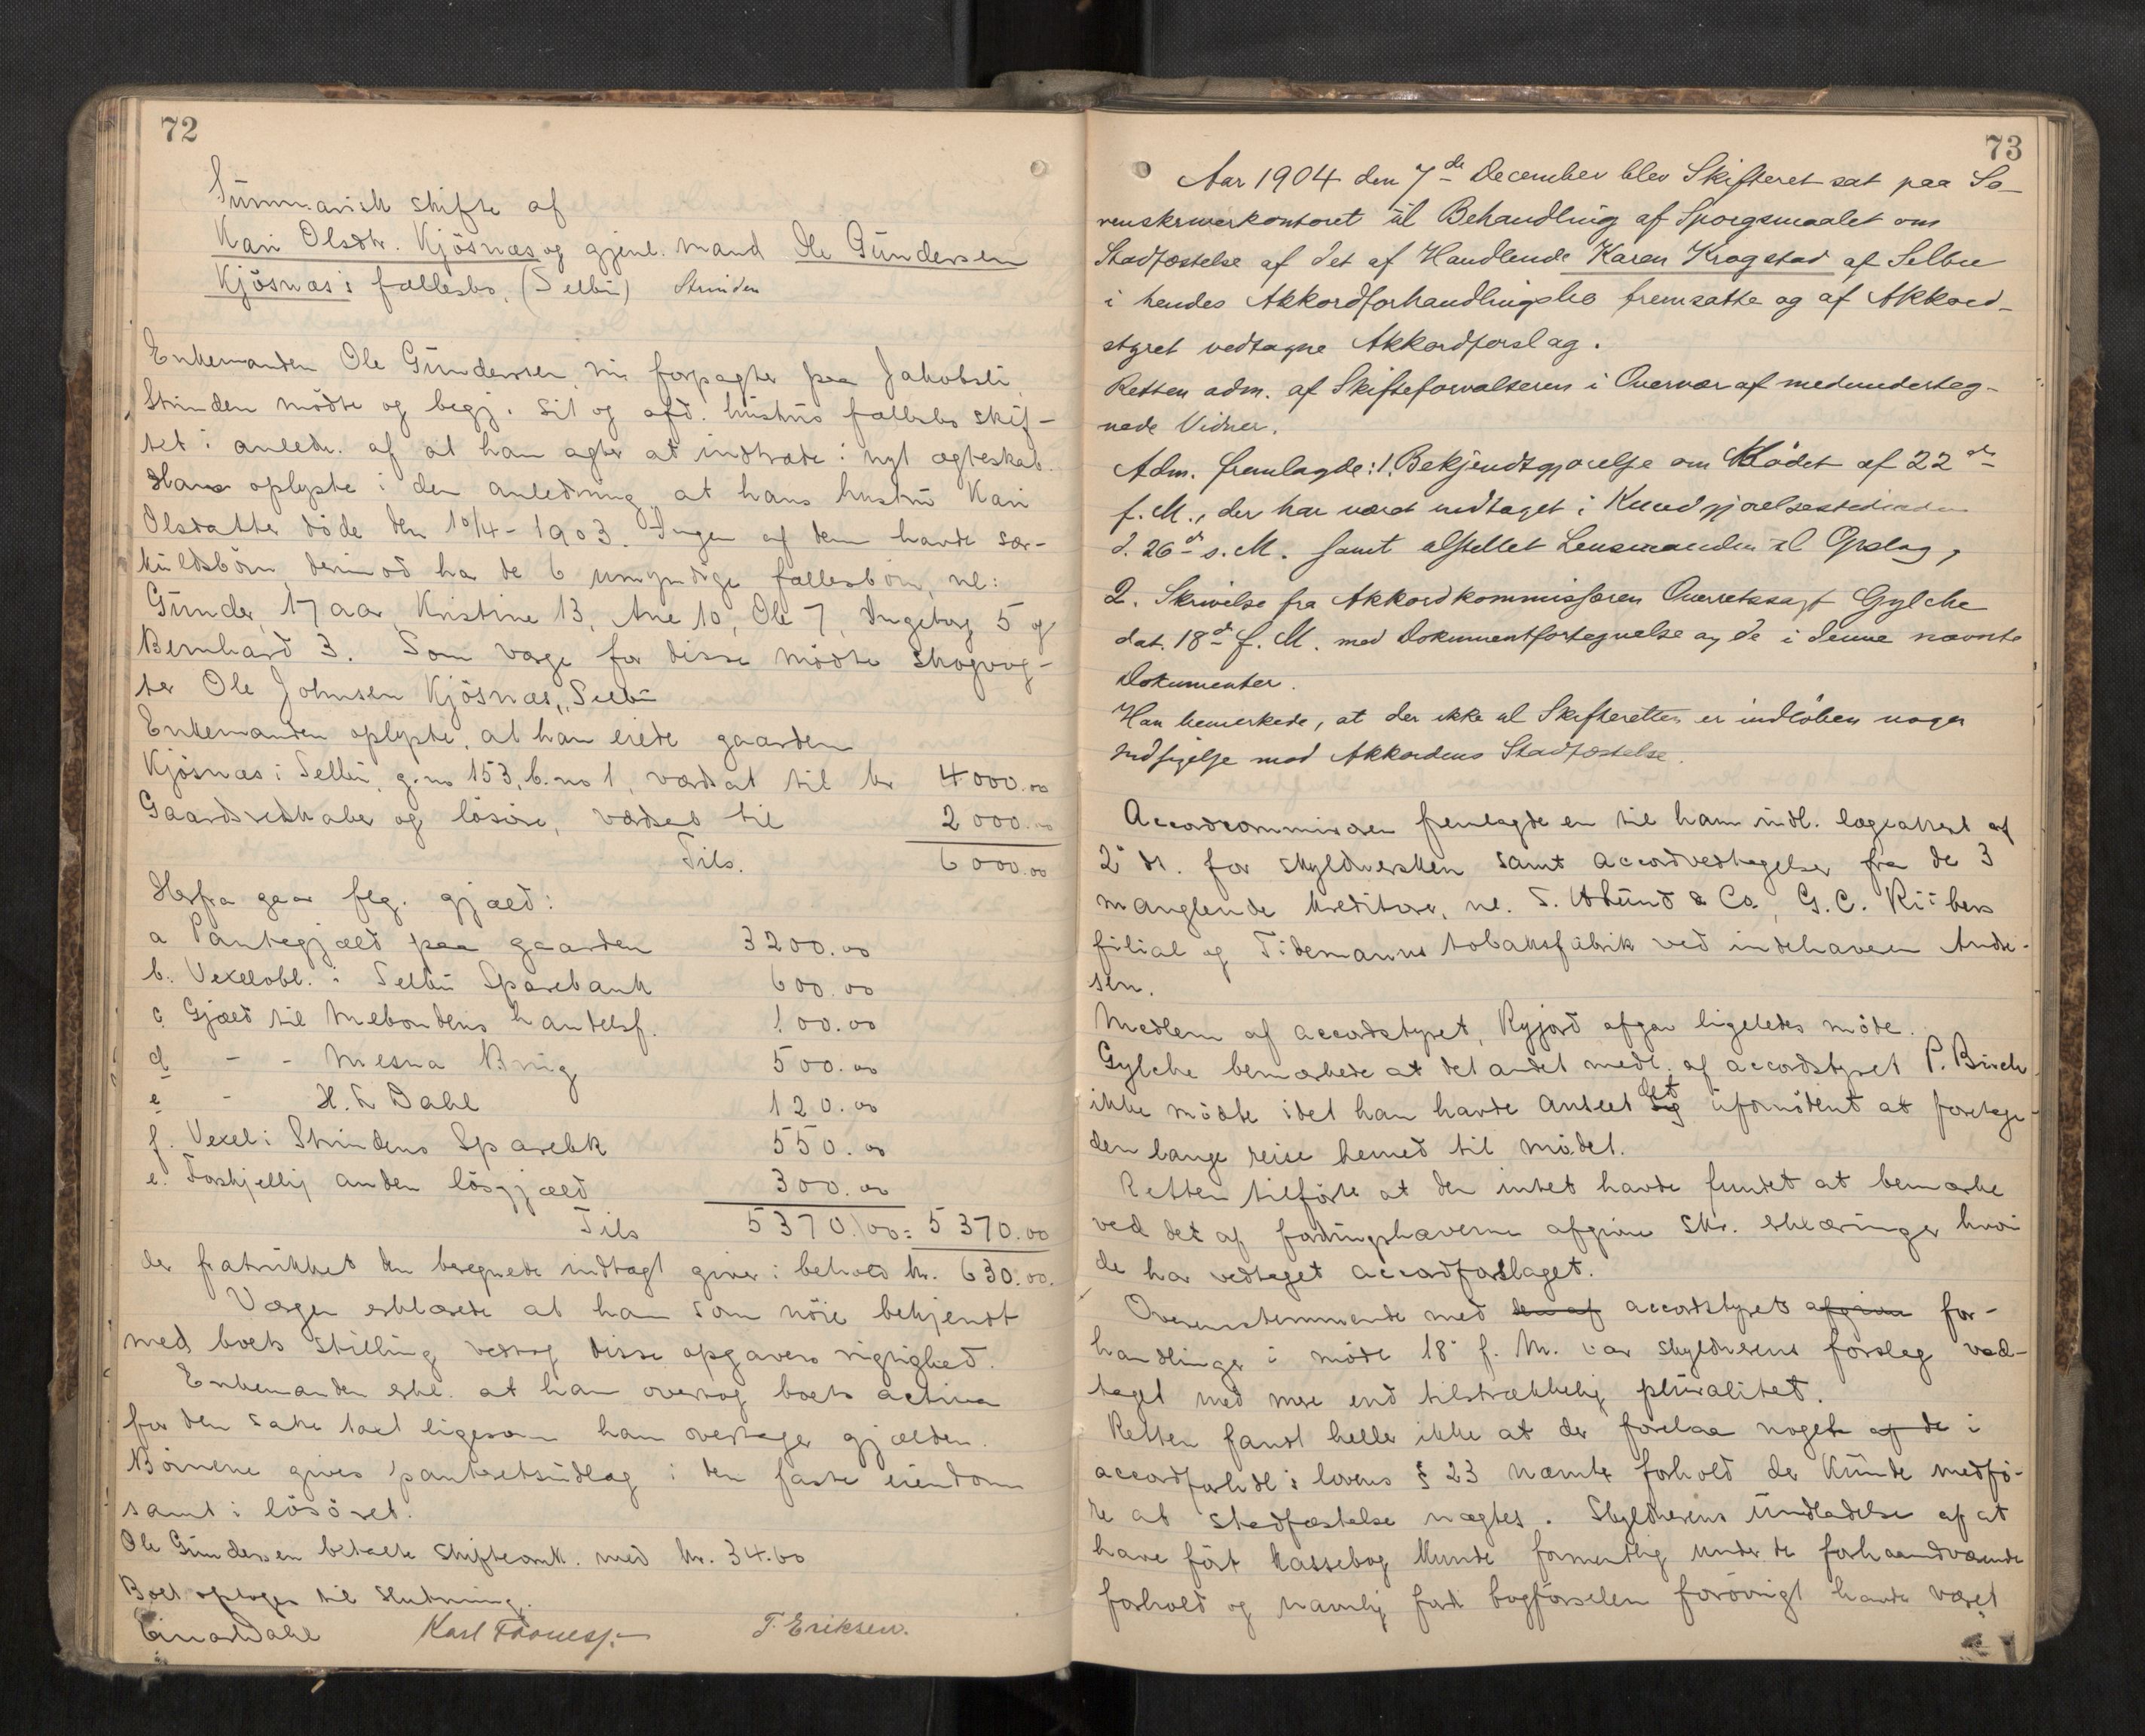 72
Summarisk skifte af
Kari Olsdtr. Kjösnæs og gjenl. mand Ole Gundersen
Kjösnæs i fællesbo, (Selbu) Strinden
Enkemanden Ole Gundersen, nu forpagter paa Jakobsli
Strinden mödte og begj. sit og afd. hustrus fællesbo skif-
tet i anledn. af at han agter at indtræde i nyt ægteskab.
Han oplyste i den anledning at hans hustru Kari
Olsdatter döde den 10/4-1903. Ingen af dem havde sær-
kuldsbörn, derimod har de 6 umyndige fællesbörn, nl:
Gunder, 17 aar, Kristine 13, Ane 10, Ole 7, Ingeborg 5 og
Bernhard 3. Som værge for disse mödte skogvog-
ter Ole Johnsen Kjösnæs, Selbu
Enkemanden oplyste, at han eiede gaarden
Kjösnæs i Selbu, g.no 153, b.no 1, værdsat til kr 4000.00
Gaardsredskaber og lösöre, værdsat til 2000.00
Tils. 6000.00
Herfra gaar flg. gjæld:
a Pantegjæld paa gaarden 3200.00
b. Vexelobl. i Selbu Sparebank 600.00
c Gjæld til Mebondens handelsf. 100.00
d - - Mesna Brug 500.00
e - H. L Dahl 120.00
f. Vexel i Strindens Sparebk 550.00
e. Forskjellig anden lösgjæld 300.00
Tils 5370.00 = 5370.00
der fratrukket den beregnede indtægt giver i behold kr. 630.00.
Værgen erklærede at han som nöie bekjendt
med boets stilling vedtog disse opgavers rigtighed.
Enkemanden erkl. at han overtog boets activa
for den satte taxt ligesom han overtager gjælden.
Börnene gives panteretsudlæg i den faste eiendom
samt i lösöret.
Ole Gundersen betalte skifteomk. med kr. 34.60
Boet optages til slutning.
Einar Dahl Karl T. Eriksen.
73
Aar 1904 den 7de December blev Skifteret sat paa So-
renskriverkontoret til Behandling af Spörgsmaalet om
Stadfæstelse af det af Handlende Karen Krogstad af Selbu
i hendes Akkordforhandlingsbo fremsatte og af Akkord-
styret vedtagne Akkordforslag.
Retten adm. af Skifteforvalteren i Overvær af medunderteg-
nede Vidner.
Adm. fremlagde: 1. Bekjendtgjörelse om Mödet af 22de
f. M., der har været indtaget i Kundgjörelsestidende
d. 26de s. M. samt tilstillet Lensmanden til Opslag,
2. Skrivelse fra Akkordkommissæren Overretssagf. Gylche
dat. 18de f. M. med Dokumentfortegnelse og de i denne nævnte
Dokumenter.
Han bemerkede, at der ikke til Skifteretten er indlöben nogen
Indsigelse mod Akkordens Stadfæstelse.
Accordcommissæren fremlagde en til ham indl. lægeattest af
2' ds. for skyldnersken samt accordvedtagelser fra de 3
manglende kreditorer, nl. S. & Co, G. C. Riibers
filial og Tidemanns tobaksfabrik ved indehaveren Andre-
sen.
Medlem af accordstyret, Kyjord afgav ligeledes möde.
Gylche bemærkede at det andet medl. af accordstyret P. Birch
ikke mödte idet han havde anseet det ufornödent at foretage
den lange reise herned til mödet.
Retten tilförte at den intet havde fundet at bemærke
ved det af fordringshaverne afgivne skr. erklæringer hvori
de har vedtaget accordforslaget.
Overensstemmende med den af accordstyrets afgivne for-
handlinger i möde 18' f. M. var skyldnerens forslag ved-
taget med mere end tilstrækkelig pluralitet.
Retten fandt heller ikke at der forelaa noget af de i
accordforhdl: lovens § 23 nævnte forhold der kunde medfö-
re at stadfæstelse nægtes. Skyldnerens undladelse af at
have fört kassebog kunde formentlig under de forhaandværende
forhold og navnlig fordi bogförselen forövrigt havde været